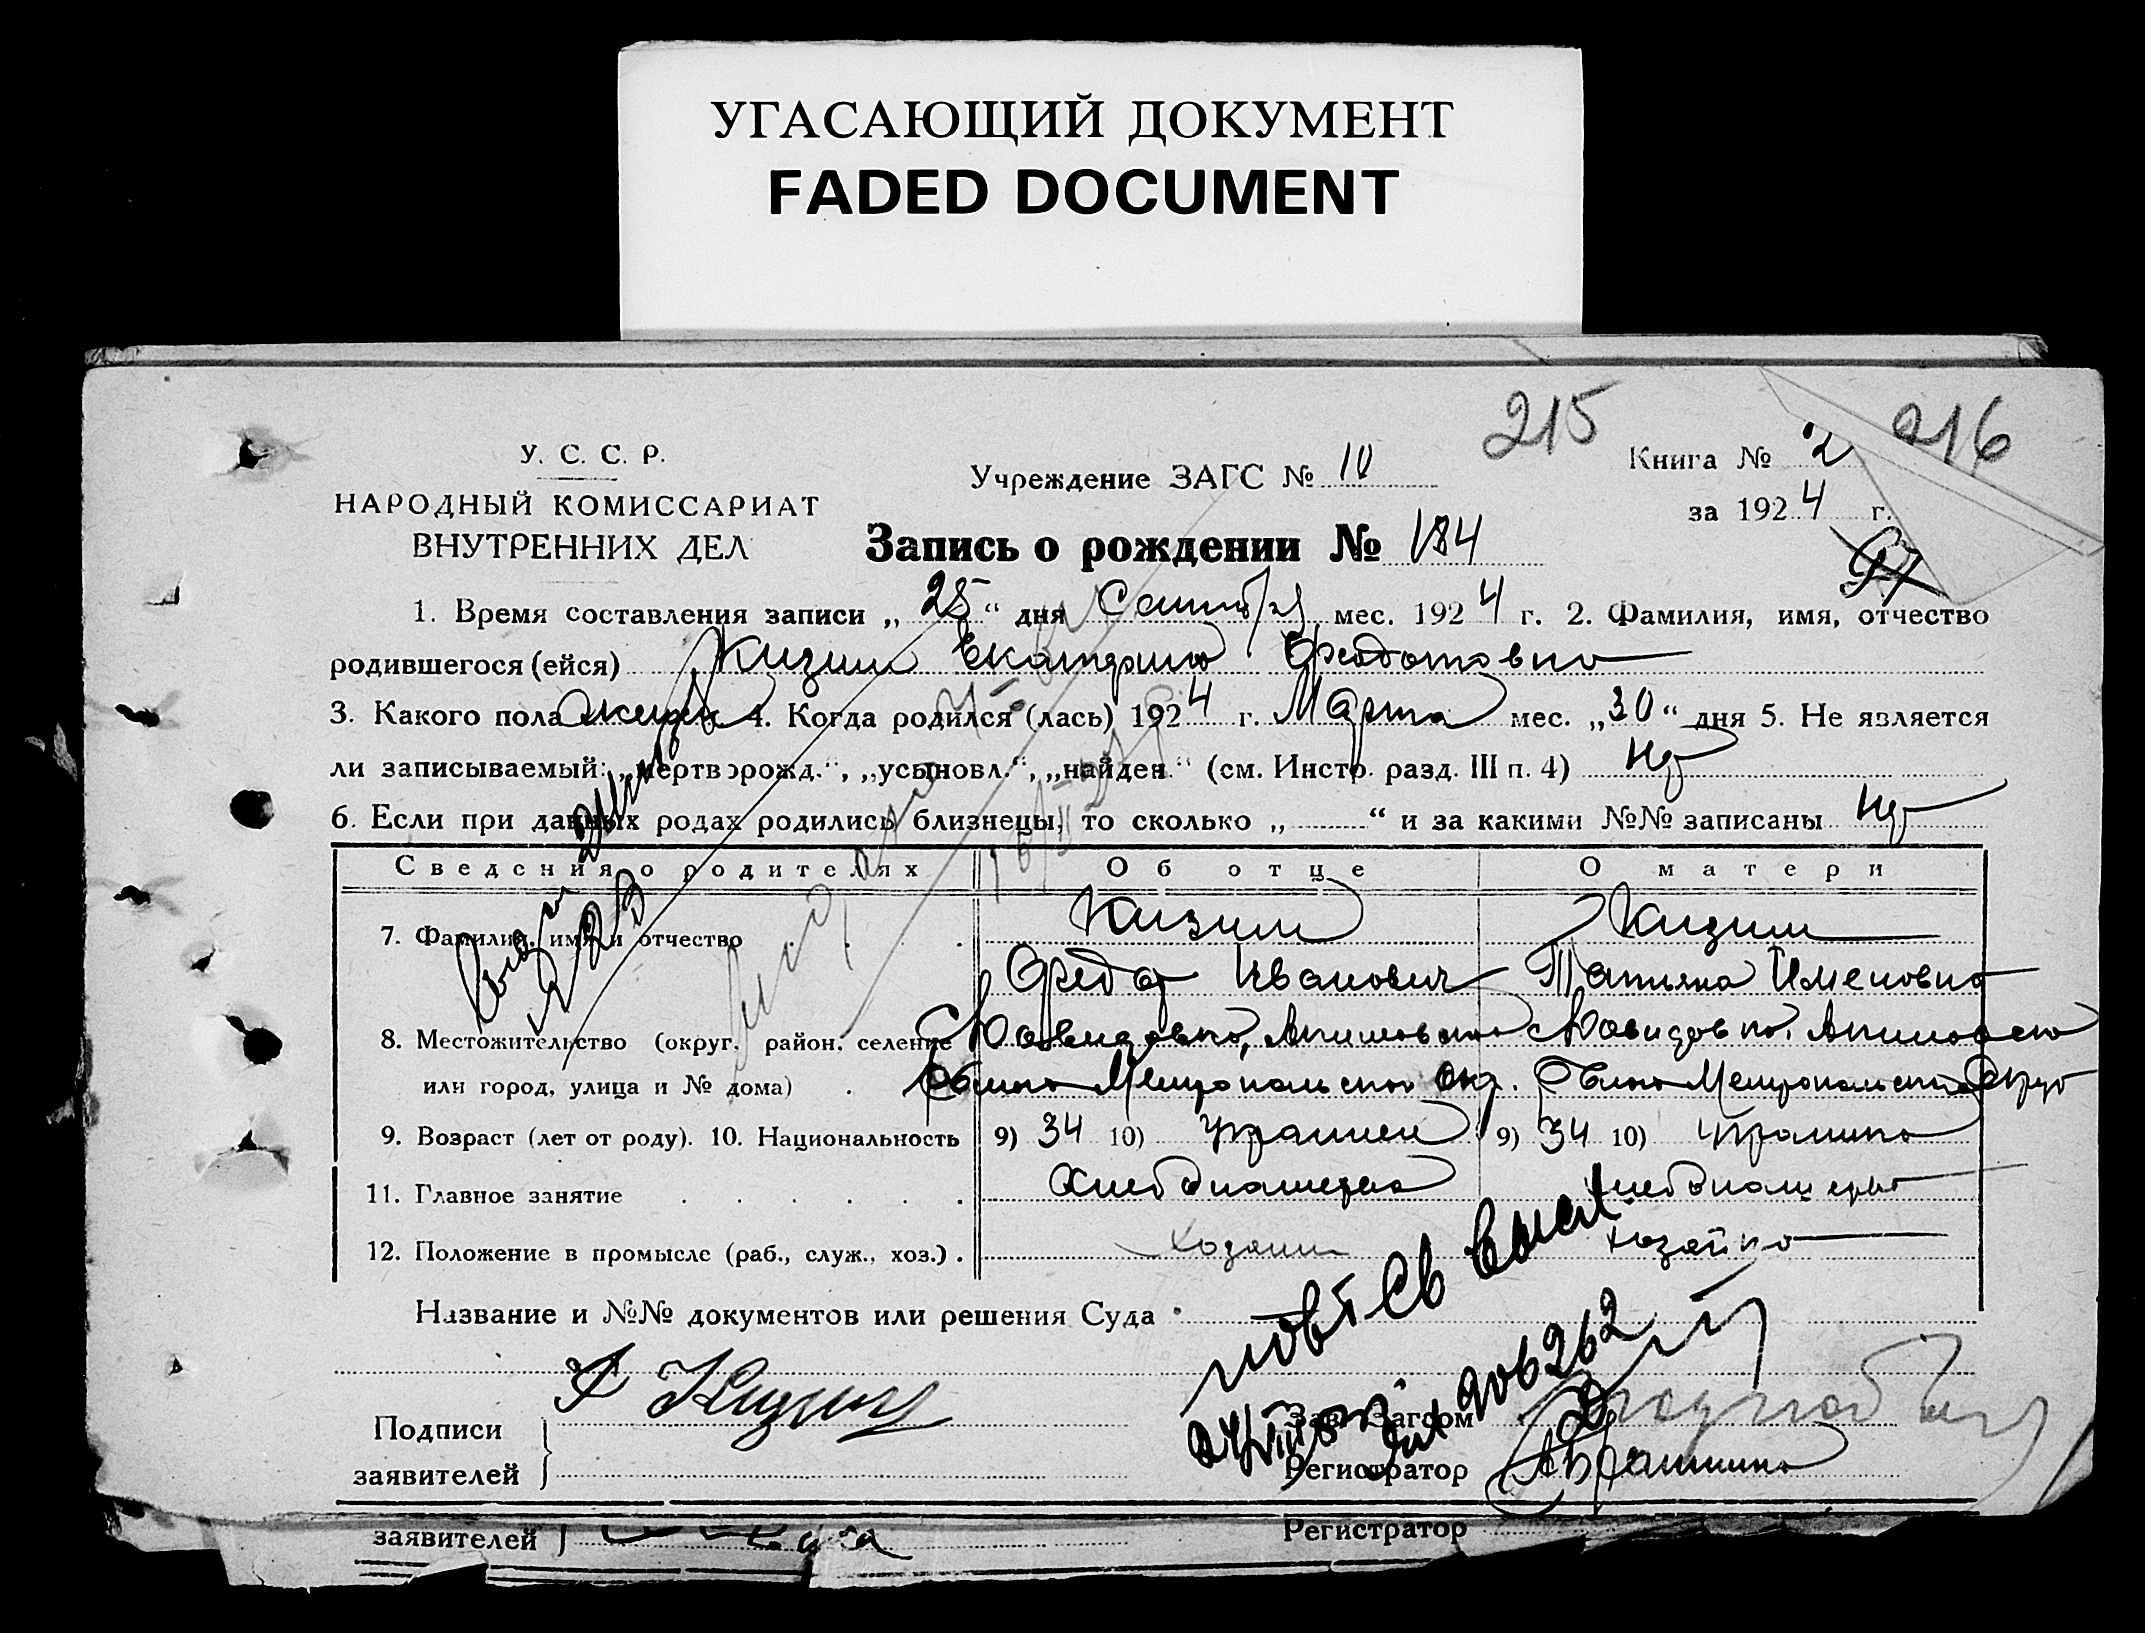 УГАСАЮЩИЙ ДОКУМЕНТ
FADED DOCUMENT
215
216
У. С. С. Р.
НАРОДНЫЙ КОМИССАРИАТ
ВНУТРЕННИХ ДЕЛ
Учреждение ЗАГС № 10
Книга № 2
за 1924 г.
97
Запись о рождении № 184
1. Время составления записи „25“ дня мес. 1924 г. 2. Фамилия, имя, отчество
родившегося (ейся) Кизим Екатерина Федотовна
3. Какого пола женск 4. Когда родился (лась) 1924 г. Марта мес. „30“ дня 5. Не является
ли записываемый: „мертворожд.“, „усыновл.“, „найден.“ (см. Инстр. разд. III п. 4) Нет
6. Если при данных родах родились близнецы, то сколько „ “ и за какими №№ записаны Нет
Сведения о родителях Об отце О матери
7. Фамилия, имя и отчество Кизим Кизим
Федот Иванович Татьяна
8. Местожительство (округ, район, селение
или город, улица и № дома) Мелитопольской окр.
9. Возраст (лет от роду). 10. Национальность 9) 34 10) Украинец 9) 34 10) Украинка
11. Главное занятие Хлебопашество
12. Положение в промысле (раб., служ., хоз.) Хозяин хозяйка
Название и №№ документов или решения Суда
повт св выдал
Подписи
заявителей
Кизим
Зав. Загсом
Регистратор
заявителей
Регистратор